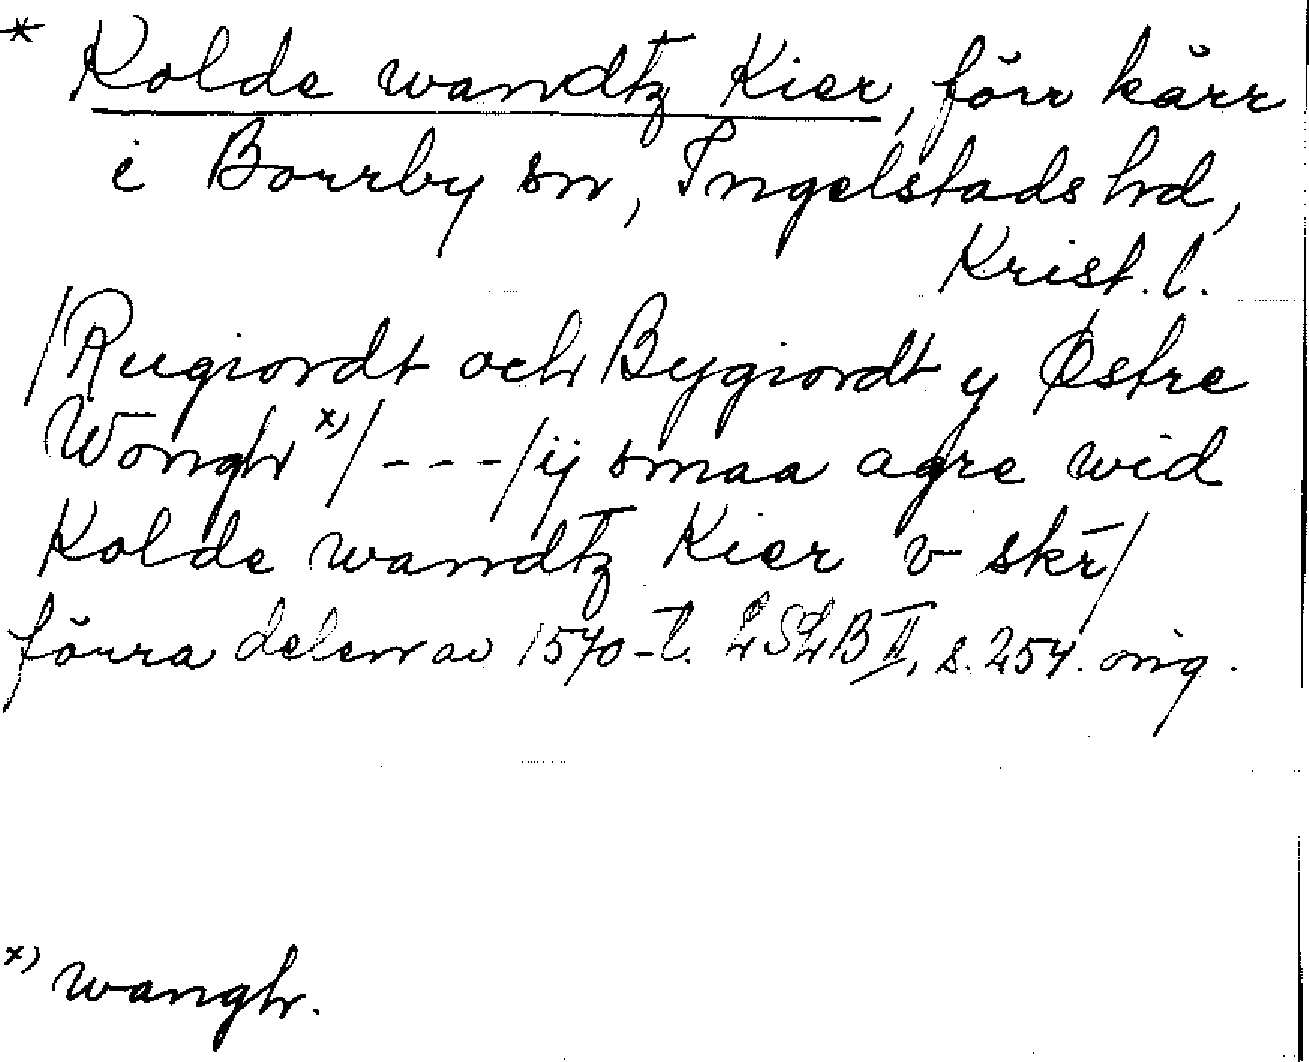 * Kolde wandtz Kier, förr kärr
i Borrby sn, Ingelstads hd,
Krist. l.
/Rugiordt och Bygiordt y Østre
Wongh x)/ - - - /ij smaa agre wid
Kolde wandtz Kier v skr/
förra delen av 1570-t. LSLB II, s. 254. orig.
x) wangh.